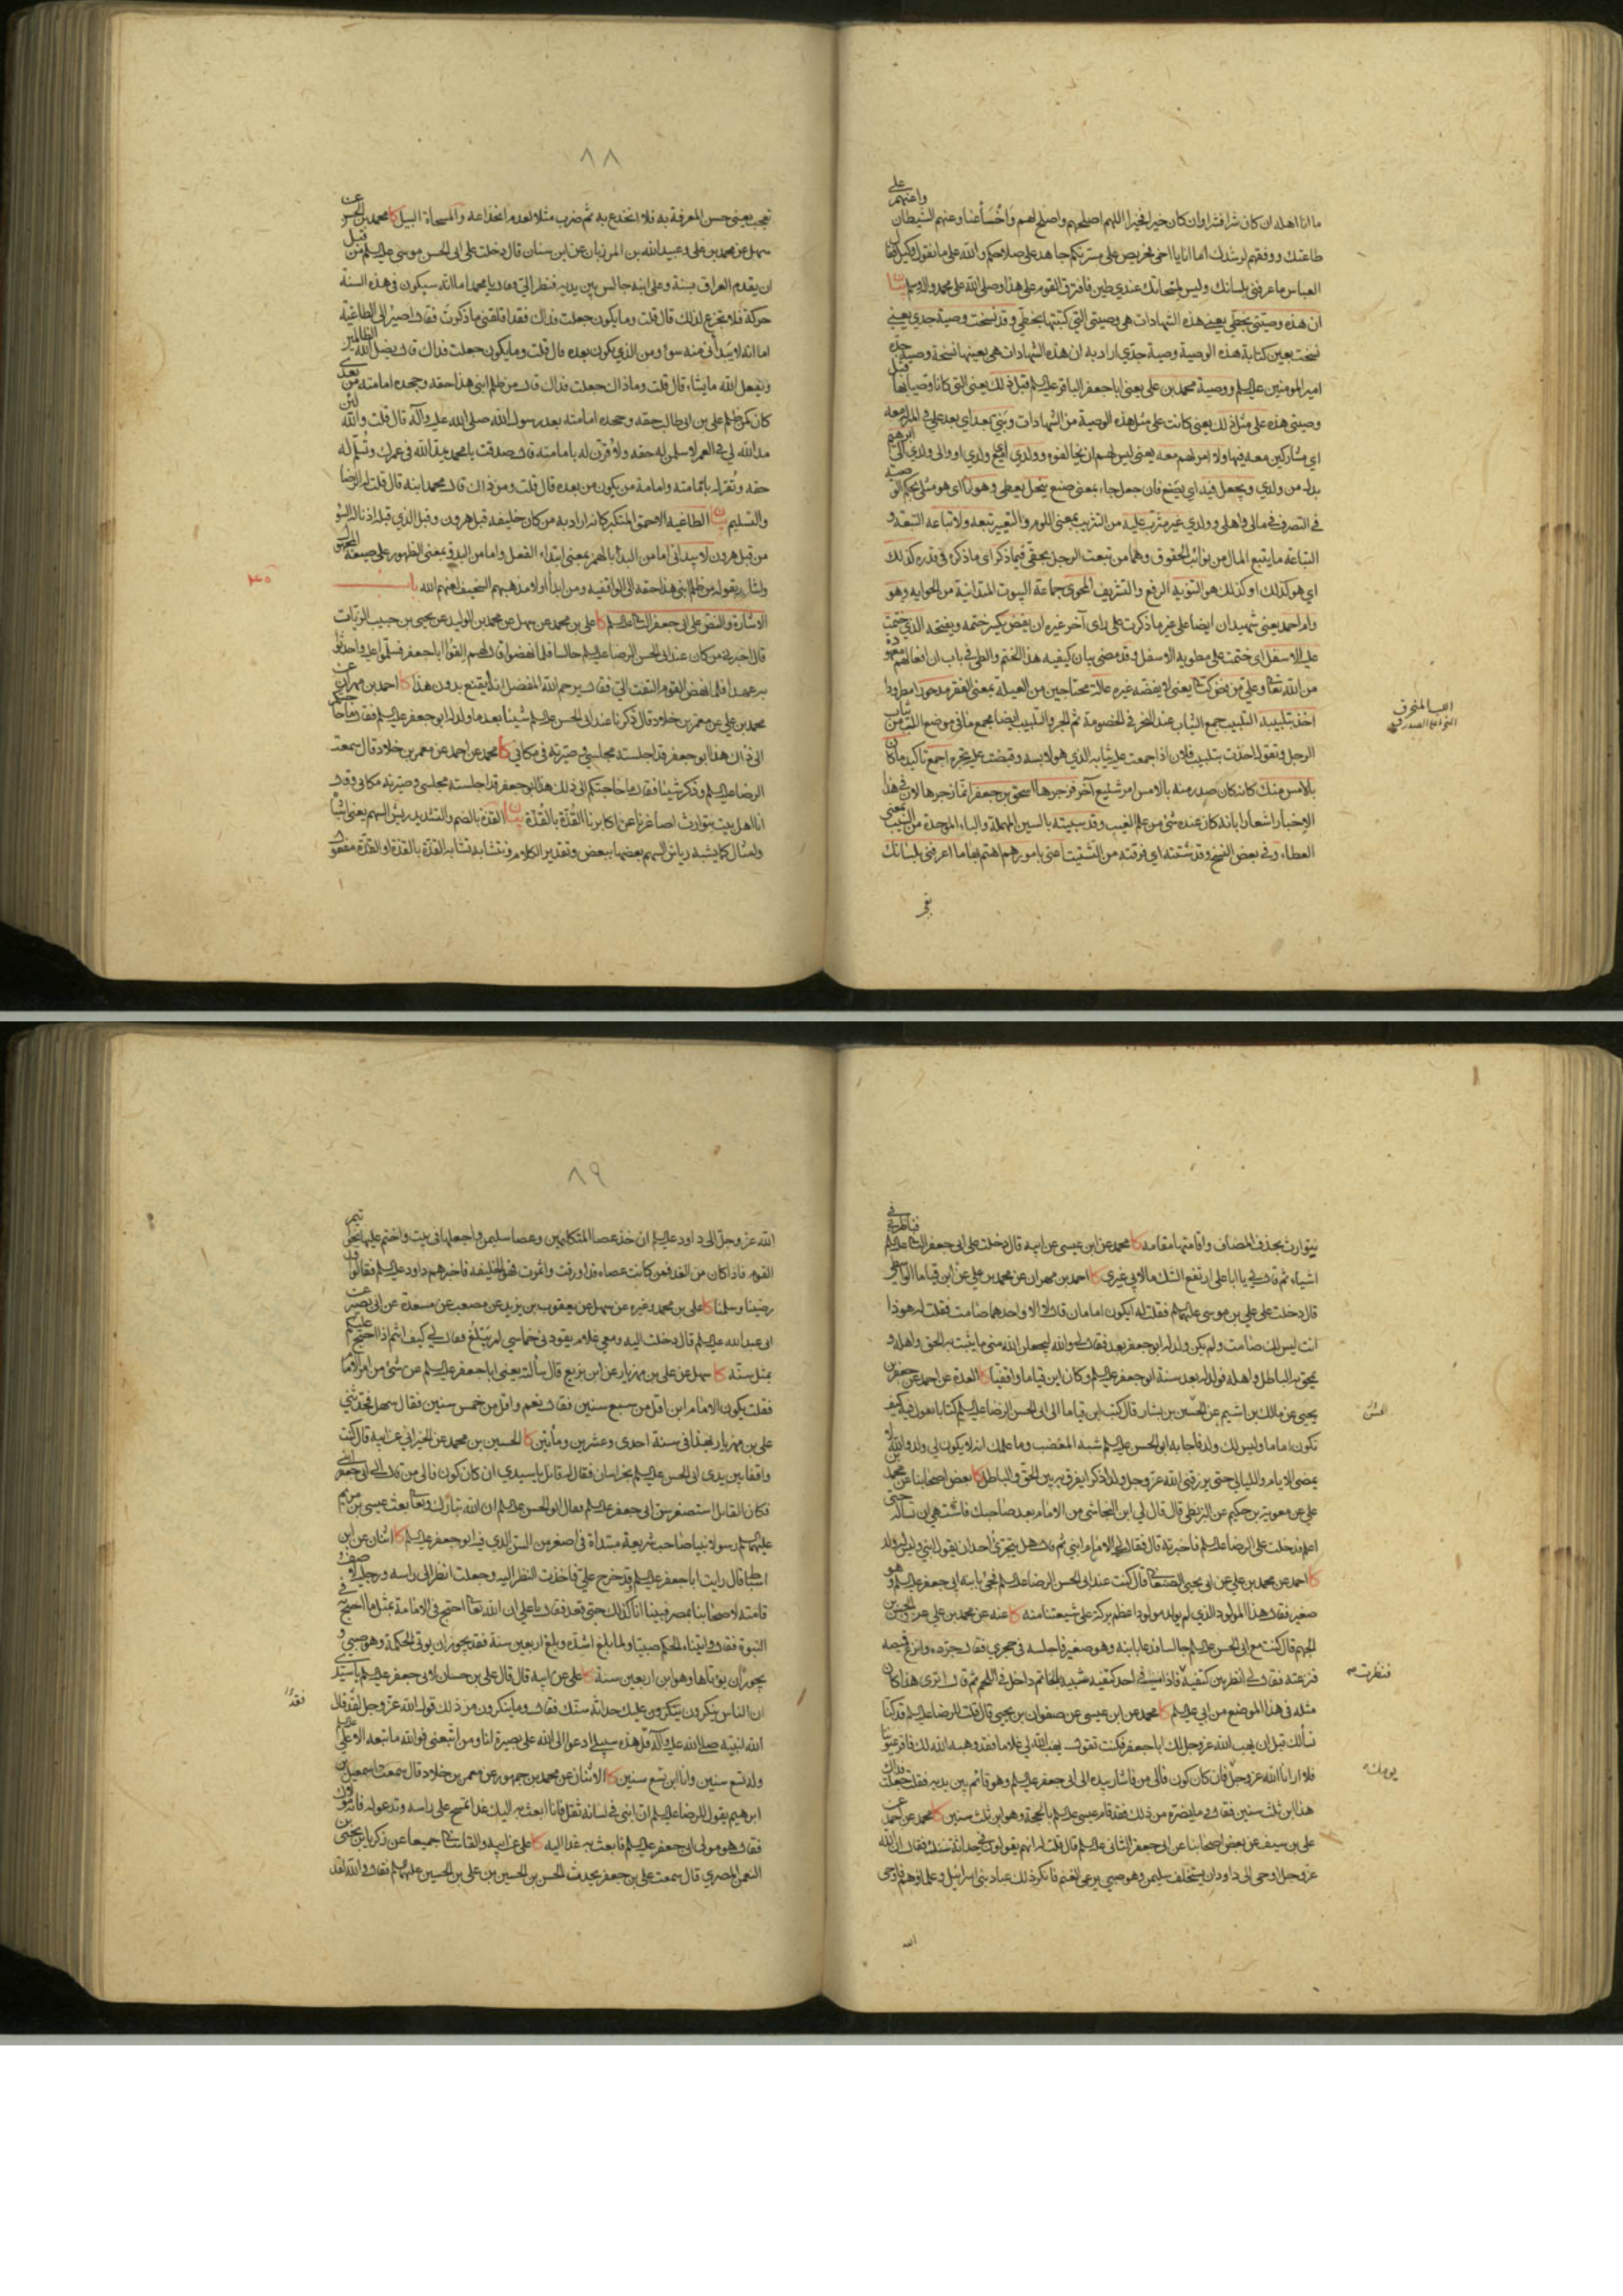 ما انا اهله ان كان شرا فشرا وان كان خيرا فخيرا اللهم اصلحهم واصلح لهم واخسأ عنا وعنهم الشيطان واعنهم على
طاعتك ووفقهم لرشدك اما انا يا اخي فحريص على مسرتكم جاهد على صلاحكم والله على ما نقول وكيل فقال
العباس ما اعرفني بلسانك وليس لمسحاتك عندي طين فافترق القوم على هذا وصلى الله على محمد واله وسلم بيان
ان هذه وصيتي بخطي يعني هذه الشهادات هي وصيتي التي كتبتها بخطي وقد نسخت وصية جدي يعني
نسخت بعين كتابة هذه الوصية وصية جدي اراد به ان هذه الشهادات هي بعينها نسخة وصية جده
امير المومنين عليه السلم ووصية محمد بن علي يعني ابا جعفر الباقر عليه السلم قبل ذلك يعني التي كانا وصيا بها قبل
وصيتي هذه على مثل ذلك يعني كانت على مثل هذه الوصية من الشهادات وبني بعد اي بعد علي
اي مشاركين معه فيها ولا امر لهم معه يعني ليس لهم ان يخالفوه وولدي
في التصرف في مالي واهلي وولدي غير مثرب عليه من التثريب بمعنى اللوم والتعيير تبعه ولا تباعه التبعة و
التباعة ما يتبع المال من نوائب الحقوق وهما من تبعت الرجل بحقي فيما ذكر اي ما ذكره في قدره كذلك
اي هو كذلك او كذلك هو التنويه الرفع والتشريف
وام احمد يعني شهيدان ايضا على غير ما ذكرت على راي آخر غيره ان يفض يكسر ختمه ويفتحه الذي ختمت
عليه الاسفل اي ختمت على مطويه الاسفل وقد مضى بيان كيفيه هذا الختم والطي في باب ان افعالهم معهودة
اخذ بتلبيبه التلبيب جمع الثياب عند النحر في الخصومة ثم الجر والتلبيب ايضا مجمع ما في موضع اللبب من ثياب
الرجل وتقول اخذت بتلبيب فلان اذا جمعت عليه ثيابه الذي هو لابسه وقبضت عليه تجره اجمع تاكيد ما كان
بالامس منك كانه كان صدر منه بالامس امر شنيع آخر فزجرها اسحق بن جعفر انما زجرها لان في هذا
الاخبار اشعارا بانه كان عنده شيء من علم الغيب وقد سيبته بالسين المهملة والباء الموحدة من السيب بمعنى
العطاء وفي بعض النسخ وقد شتته اي فرقته من التشتيت اعني بامورهم اهتم بها ما اعرفني بلسانك
٨٨
تعجب يعني حسن المعرفة به فلا انخدع به ثم ضرب مثلا لعدم انخداعه والمسحاة البيل كا محمد بن الحسن عن
سهل عن محمد بن علي وعبيد الله بن المرزبان عن ابن سنان قال دخلت على ابي الحسن موسى عليه السلم من قبل
ان يقدم العراق بسنة وعلي ابنه جالس بين يديه فنظر الي وقال يا محمد اما انه سيكون في هذه السنة
حركة فلا تجزع لذلك قال قلت وما يكون جعلت فداك فقد اقلقني ما ذكرت فقال اصير الى الطاغية
اما انه لا يبداني منه سوء ومن الذي يكون بعده قال قلت وما يكون جعلت فداك قال يضل الله الظالمين
ويفعل الله ما يشاء قال قلت وما ذاك جعلت فداك قال من ظلم ابني هذا حقه وجحده امامته من بعدي
كان كمن ظلم علي بن ابي طالب حقه وجحده امامته بعد رسول الله صلى الله عليه وآله قال قلت والله لئن
مد الله لي في العمر لاسلمن له حقه ولاقرن له بامامته قال صدقت يا محمد يمد الله في عمرك وتسلم له
حقه وتقر له بامامته وامامة من يكون من بعده قال قلت ومن ذاك قال محمد ابنه قال قلت له الرضا
والتسليم بيان الطاغية الاحمق المتكبر كانه اراد به من كان خليفه قبل هرون وقبل الذي قبله
من قبل هرون لا يبداني اما من البدأ بالهمز بمعنى ابتداء الفعل واما من البدو بمعنى الظهور على صيغة المجهول
واشار بقوله من ظلم ابني هذا حقه الى الواقفيه ومن ابدأ اولا مذهبهم السخيف لعنهم الله باب
الاشارة والنص على ابي جعفر الثاني عليه السلم كا علي بن محمد عن سهل عن محمد بن الوليد عن يحيى بن حبيب الزيات
قال اخبرني من كان عند ابي الحسن الرضا عليه السلم جالسا فلما نهضوا قال لهم القوا ابا جعفر فسلموا عليه واحدثوا
به عهدا فلما نهض القوم التفت الي فقال يرحم الله المفضل انه ليقنع بدون هذا كا احمد بن مهران عن
محمد بن علي عن معمر بن خلاد قال ذكرنا عند ابي الحسن عليه السلم شيئا بعد ما ولد له ابو جعفر عليه السلم فقال ما حاجتكم
الى ذاك هذا ابو جعفر قد اجلسته مجلسي وصيرته في مكاني كا محمد عن احمد عن معمر بن خلاد قال سمعت
الرضا عليه السلم وذكر شيئا فقال ما حاجتكم الى ذلك هذا ابو جعفر قد اجلسته مجلسي وصيرته مكاني وقال
انا اهل بيت يتوارث اصاغرنا عن اكابرنا القذة بالقذة بيان القذة بالضم والتشديد ريش السهم يعني اشباه
وامثال كما يشبه رياش السهم بعضها ببعض وتقدير الكلام وتتشابه تشابه القذة بالقذة او القذة مفعول
يتوارث بحذف المضاف واقامتها مقامه كا محمد عن ابن عيسى عن ابيه قال دخلت على ابي جعفر الثاني عليه السلم فناظرني في
اشياء ثم قال لي يا ابا علي ارتفع الشك ما لابي غيري كا احمد بن مهران عن محمد بن علي عن ابن قياما الواسطي
قال دخلت على علي بن موسى عليهما السلم فقلت له ايكون امامان قال لا الا واحدهما صامت فقلت له هو ذا
انت ليس لك صامت ولم يكن ولد له ابو جعفر بعد فقال لي والله ليجعلن الله مني ما يثبت به الحق واهله و
يمحق به الباطل واهله فولد له بعد سنة ابو جعفر عليه السلم وكان ابن قياما واقفيا كا العدة عن احمد عن جعفر بن
يحيى عن مالك بن اشيم عن الحسين بن بشار قال كتب ابن قياما الى ابي الحسن الرضا عليه السلم كتابا يقول فيه كيف
تكون اماما وليس لك ولد فاجابه ابو الحسن عليه السلم شبه المغضب وما علمك انه لا يكون لي ولد والله لا
يمضي الايام والليالي حتى يرزقني الله عز وجل ولدا ذكرا يفرق به بين الحق والباطل كا بعض اصحابنا عن محمد بن
علي عن معوية بن حكيم عن البزنطي قال قال لي ابن النجاشي من الامام بعد صاحبك فاشتهي ان تساله حتى
اعلم فدخلت على الرضا عليه السلم فاخبرته قال فقال لي الامام ابني ثم قال هل يتجرئ احد ان يقول ابني وليس له ولد
كا احمد عن محمد بن علي عن ابي يحيى الصنعاني قال كنت عند ابي الحسن الرضا عليه السلم فجئ بابنه ابي جعفر عليه السلم وهو
صغير فقال هذا المولود الذي لم يولد مولود اعظم بركة على شيعتنا منه كا عنه عن محمد بن علي عن الحسن بن
الجهم قال كنت مع ابي الحسن عليه السلم جالسا فدعا بابنه وهو صغير فاجلسه في حجري فقال جرده وانزع قميصه
فنزعته فقال لي انظر بين كتفيه فاذا في احد كتفيه شبيه بالخاتم داخل في اللحم ثم قال اترى هذا كان
فنظرت
مثله في هذا الموضع من ابي عليه السلم كا محمد عن ابن عيسى عن صفوان بن يحيى قال قلت للرضا عليه السلم قد كنا
نسألك قبل ان يهب الله عز وجل لك ابا جعفر فكنت تقول يهب الله لي غلاما فقد وهبه الله لك فاقر عيوننا
فلا ارانا الله يومك فان كان كون فالى من فاشار بيده الى ابي جعفر عليه السلم وهو قائم بين يديه فقلت جعلت فداك
يومك
هذا ابن ثلث سنين فقال وما يضره من ذلك فقد قام عيسى عليه السلم بالحجة وهو ابن ثلث سنين كا محمد عن احمد عن
علي بن سيف عن بعض اصحابنا عن ابي جعفر الثاني عليه السلم قال قلت له انهم يقولون في حداثة سنك فقال ان الله
عز وجل اوحى الى داود ان يستخلف سليمن وهو صبي يرعى الغنم فانكر ذلك عباد بني اسرائيل وعلماؤهم فاوحى
الله
٨٩
الله عز وجل الى داود عليه السلم ان خذ عصا المتكلمين وعصا سليمن واجعلها في بيت واختم عليها بخواتيم
القوم فاذا كان من الغد فمن كانت عصاه قد اورقت واثمرت فهو الخليفه فاخبرهم داود عليه السلم فقالوا قد
رضينا وسلمنا كا علي بن محمد وغيره عن سهل عن يعقوب بن يزيد عن مصعب عن مسعدة عن ابي بصير عن
ابي عبد الله عليه السلم قال دخلت اليه ومعي غلام يقودني خماسي لم يبلغ فقال لي كيف انتم اذا احتج عليكم
بمثل سنه كا سهل عن علي بن مهزيار عن ابن بزيع قال سألته يعني ابا جعفر عليه السلم عن شيء من امر الامام
فقلت يكون الامام ابن اقل من سبع سنين فقال نعم واقل من خمس سنين فقال سهل فحدثني
علي بن مهزيار بهذا في سنة احدى وعشرين ومأتين كا الحسين بن محمد عن الخيراني عن ابيه قال كنت
واقفا بين يدي ابي الحسن عليه السلم بخراسان فقال له قائل يا سيدي ان كان كون فالى من قال الى ابي جعفر ابني
فكان القائل استصغر سن ابي جعفر عليه السلم فقال ابو الحسن عليه السلم ان الله تبارك وتعالى بعث عيسى بن مريم
عليهما السلم رسولا نبيا صاحب شريعة مبتدأة في اصغر من السن الذي فيه ابو جعفر عليه السلم كا اثنان عن ابن
اسباط قال رايت ابا جعفر عليه السلم قد خرج علي فاخذت النظر اليه وجعلت انظر الى راسه ورجليه لاصف
قامته لاصحابنا بمصر فبينا انا كذلك حتى قعد فقال يا علي ان الله تعالى احتج في الامامة بمثل ما احتج به في
النبوة فقال واتيناه الحكم صبيا ولما بلغ اشده وبلغ اربعين سنة فقد يجوز ان يوتى الحكمة وهو صبي و
يجوز ان يوتاها وهو ابن اربعين سنة كا علي عن ابيه قال قال علي بن حسان لابي جعفر عليه السلم يا سيدي
ان الناس ينكرون عليك حداثة سنك فقال وما ينكرون من ذلك قول الله عز وجل لقد قال
الله لنبيه صلى الله عليه وآله قل هذه سبيلي ادعوا الى الله على بصيرة انا ومن اتبعني فوالله ما تبعه الا علي عليه السلم
وله تسع سنين وانا ابن تسع سنين كا الاثنان عن محمد بن جمهور عن معمر بن خلاد قال سمعت اسمعيل بن
ابرهيم يقول للرضا عليه السلم ان ابني في لسانه ثقل فانا ابعث به اليك غدا تمسح على راسه وتدعو له فانه مولاك
فقال هو مولى ابي جعفر عليه السلم فابعث به غدا اليه كا علي عن ابيه والقاساني جميعا عن زكريا بن يحيى بن
النعمن المصري قال سمعت علي بن جعفر يحدث الحسن بن الحسين بن علي بن الحسين عليهما السلم فقال والله لقد